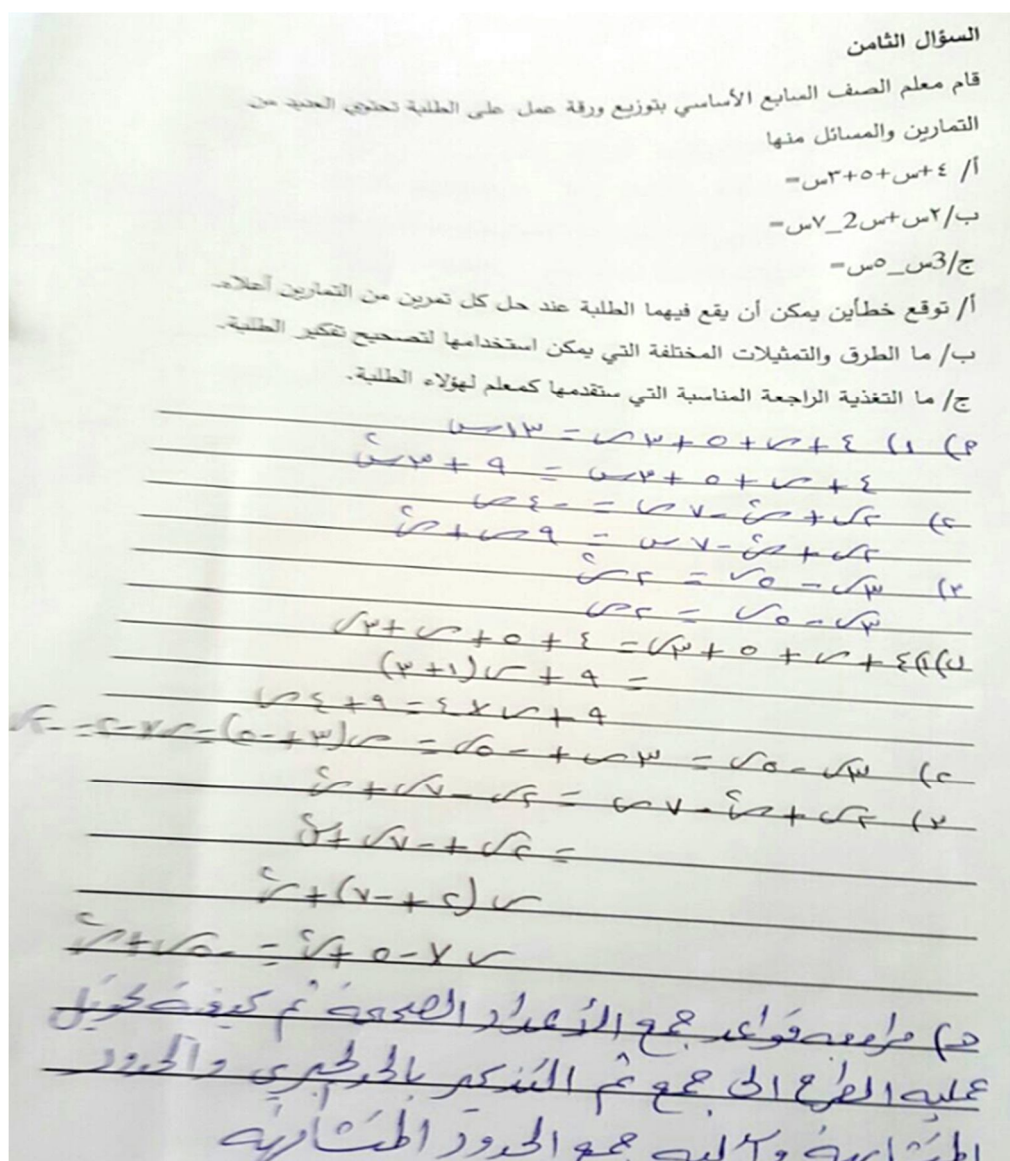 السؤال الثامن
قام معلم الصف السابع الأساسي بتوزيع ورقة عمل على الطلبة تحتوي العديد من
التمارين والمسائل منها
أ/ ٤+س+٥+٣س=
ب/٢س+س2_٧س=
ج/3س_٥س=
أ/ توقع خطأين يمكن أن يقع فيهما الطلبة عند حل كل تمرين من التمارين أعلاه.
ب/ ما الطرق والتمثيلات المختلفة التي يمكن استخدامها لتصحيح تفكير الطلبة.
ج/ ما التغذية الراجعة المناسبة التي ستقدمها كمعلم لهؤلاء الطلبة.
أ) ١) ٤+س+٥+٣س = ١٣س
٤+س+٥+٣س = ٩+٣س٢
٢) ٢س+س٢-٧س = -٤س
٢س+س٢-٧س = ٩س+س٢
٣) ٣س-٥س = ٢س٢
٣س-٥س = ٢س
ب) ١) ٤+س+٥+٣س = ٤+٥+س+٣س
= ٩+س(١+٣)
٩+س×٤ = ٩+٤س
٢) ٣س-٥س = ٣س+-٥س = س(٣+-٥) = س×-٢ = -٢س
٣) ٢س+س٢-٧س = ٢س-٧س+س٢
= ٢س+-٧س+س٢
س(٢+-٧)+س٢
س×-٥+س٢ = -٥س+س٢
ج) مراجعة قواعد جمع الأعداد الصحيحة ثم كيفية تحويل
عملية الطرح الى جمع ثم التذكير بالحد الجبري والحدود
المتشابهة جمع الحدود المتشابهة